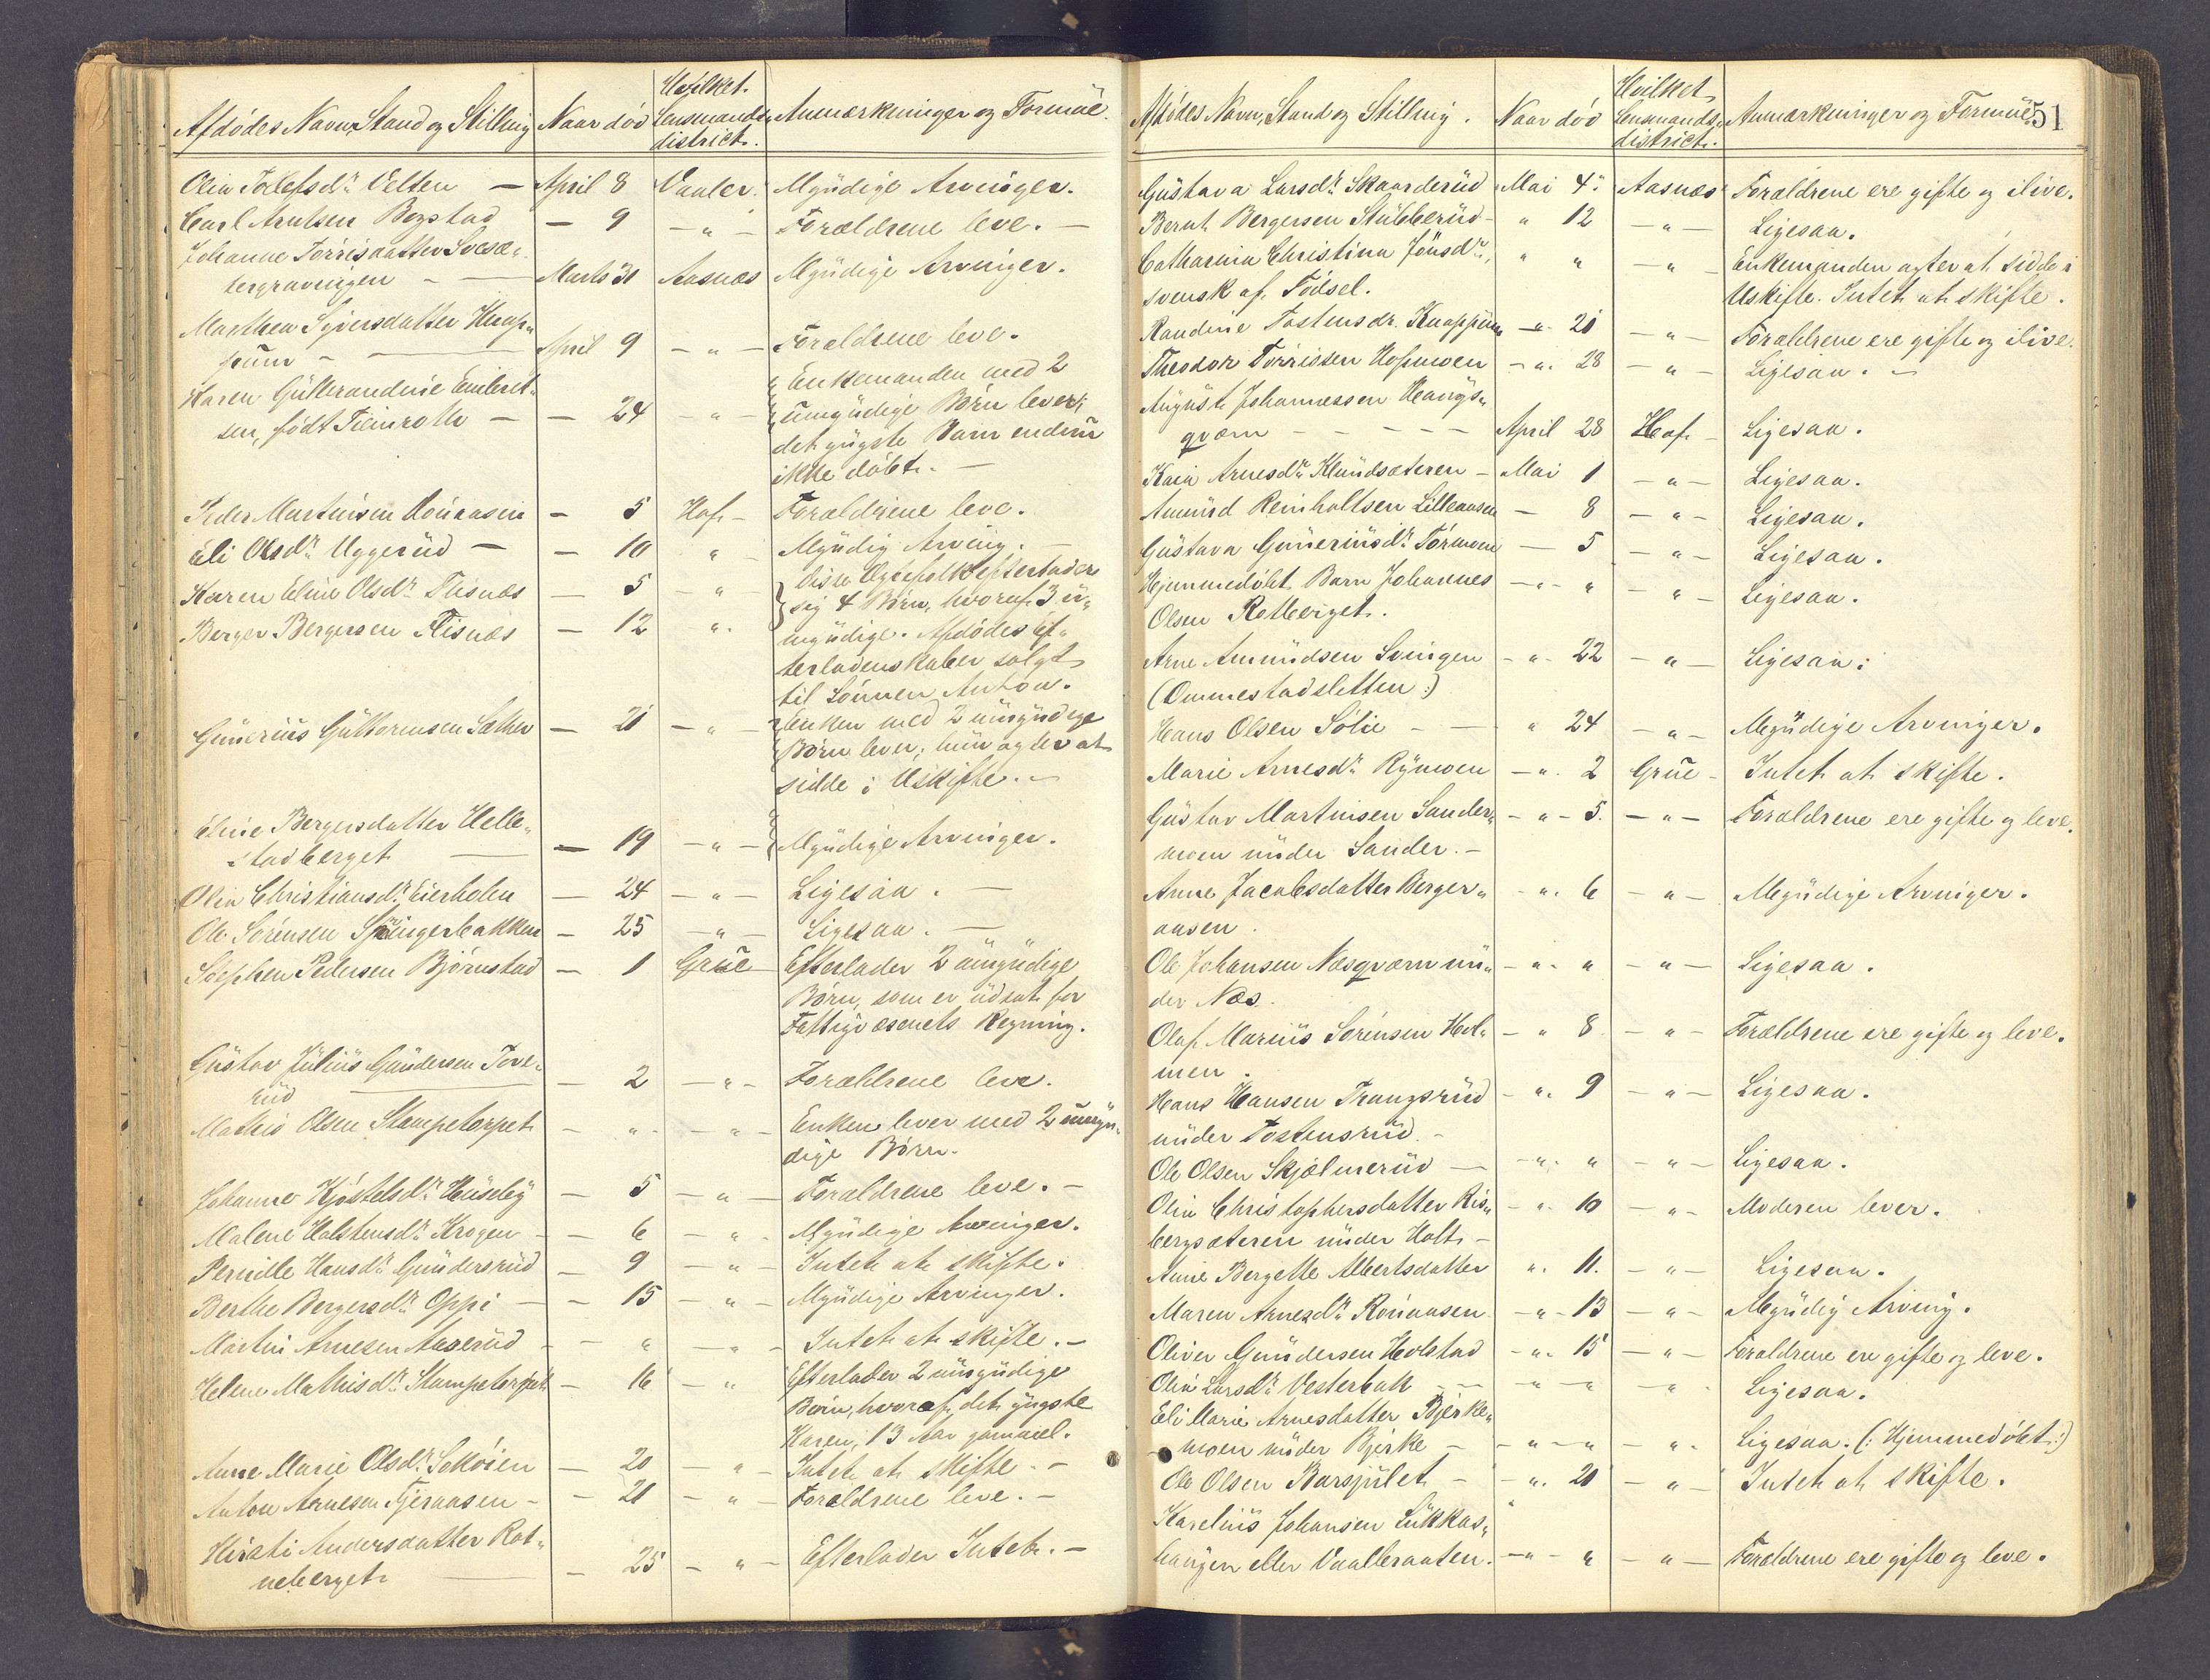 Afdødes Navn, Stand og Stilling
Naar død
Hvilket
Lensmands
district.
Anmærkninger og Formue.
Olia Torlefsdr. Velten — April 8 Vaaler. Myndige Arvinger.
Carl Arntsen Bogstad — 9 — " — Forældrene leve. —
Johanne Torrisdatter Svesæ„
tergravingen — Marts 31 Aasnæs Myndige Arvinger.
Marthea Syversdatter Knap„
puim — April 9 — " — Forældrene leve.
Karen Gulbrandine Embret„
sen, født Fieinroth — — 24 — " —
Enkemanden med 2
umyndige Børn lever;
det yngste Barn endnu
ikke døbt. —
Peder Martinsen Rønaasen — 5 Hof — Forældrene leve.
Eli Olsdr. Uggerud — — 10 " Myndig Arving. —
Karen Eline Olsdr. Flisnæs — 5 — "
Berger Bergersen Flisnæs — 12 — "
disse Ægtefolk efterlader
sig 4 Børn, hvoraf 3 u„
myndige. Afdødes Ef„
terladenskaber solgt
til Sønnen Anton.
Gunerius Guttormsen Sæther — 21 — " —
Enken med 2 umyndige
Børn lever; hun agter at
sidde i Uskifte. —
Eline Bergersdatter Helle„
stadberget — — 19 — " — Myndige Arvinger.
Olia Christiansdr. Eierholen — 24 — " — Ligesaa. —
Ole Sørensen Springerbakken — 25 — " — Ligesaa. —
Stephen Pedersen Bjørnstad — 1 Grue Efterlader 2 umyndige
Børn, som er udsat for
Fattigvæsenets Regning.
Gustav Julius Gundersen Tove„
rud — 2 — " — Forældrene leve.
Mathis Olsen Stampetorpet — " — " — Enken lever med 2 umyn„
dige Børn.
Johanne Kjøstelsdr. Huseby — 5 — " — Forældrene leve. —
Malene Halstensdr. Krogen — 6 — " — Myndige Arvinger.
Pernille Hansdr. Gundersrud — 9 — " — Intet at skifte.
Berthe Bergersdr. Oppi — — 15 — " — Myndige Arvinger.
Martin Arnesen Aaserud — " — " — Intet at skifte. —
Helene Mathisdr. Stampetorpet — 16 — " Efterlader 2 umyndige
Børn, hvoraf det yngste
Karen, 13 Aar gammel.
Anne Marie Olsdr. Sokøien — 20 — " — Intet at skifte. —
Anton Arnesen Tjeraasen — — 21 — " — Forældrene leve. —
Kirsti Andersdatter Rot„
neberget — — 25 — " — Efterlader Intet. —
Afdødes Navn, Stand og Stilling.
Naar død
Hvilket
Lensmands„
district.
Anmærkninger og Formue.
51
Gustava Larsdr. Skaarderud Mai 4. Aasnæs Forældrene ere gifte og ilive.
Bernt Bergersen Stubberud — " 12 — " — Ligesaa.
Catharina Christina Jønsdr., " " — " — Enkemanden agter at sidde i
svensk af Fødsel. Uskifte. Intet at skifte.
Randine Tostensdr. Knappum — " 21 — " — Forældrene ere gifte og ilive.
Theodor Torrissen Hofmoen — " 28 — " — Ligesaa. —
August Johannessen Haugs„
qvern — — — — — April 28 Hof — Ligesaa.
Kaia Arnesdr. Klundsæteren — Mai 1 — " — Ligesaa.
Amund Reinholtsen Lilleaasen — 8 — " — Ligesaa.
Gustava Guneriusdr. Tørmoen — 5 — " — Ligesaa.
Hjemmedøbt Barn Johannes — " " — " — Ligesaa.
Olsen Rotberget.
Arne Amundsen Svingen — " 22 — " — Ligesaa.
(Ommestadsletten:)
Hans Olsen Sølie — — " 24 — " — Myndige Arvinger.
Marie Arnesdr. Rymoen — " 2 Grue — Intet at skifte.
Gustav Martinsen Sander„ — " — 5. — " — Forældrene ere gifte og leve.
moen under Sander. —
Anne Jacobsdatter Berger„ — " 6 — " — Myndige Arvinger.
aasen.
Ole Johansen Næsqværn un„ — " " — " — Ligesaa.
der Næs.
Olaf Marius Sørensen Hol„ — " 8 — " — Forældrene ere gifte og leve.
men.
Hans Hansen Trangsrud — " 9 — " — Ligesaa.
under Tostensrud. —
Ole Olsen Skjølmerud — — " " — " — Ligesaa.
Olia Christophersdatter Ris„ — " 10 — " — Moderen lever.
bergsæteren under Holt —
Anne Bergette Albertsdatter " 11. — " — Ligesaa.
Maren Arnesdr. Rønaasen — " — 13 — " — Myndig Arving.
Oliver Gundersen Holstad — " 15 — " — Forældrene ere gifte og leve.
Olia Larsdr. Vesterbak — — " — " — " Ligesaa.
Eli Marie Arnesdatter Bjerke„
moen under Bjerke — — " — " — " Ligesaa. (: Hjemmedøbt :)
Ole Olsen Barsjulet — — " 21 — " — Intet at skifte.
Karelius Johansen Lukkas„
haugen eller Vaalbraaten. — " — " — " — Forældrene ere gifte og leve.